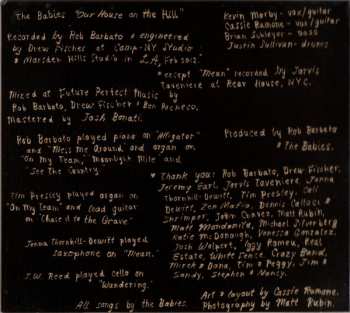 The Babies "Our House on the Hill"
Recorded by Rob Barbato & engineered
by Drew Fischer at Comp-NY Studio
& Marsden Hills Studio in L.A, Feb 2012*
*except "Mean" recorded by Jarvis
Taveniere at Rear House, NYC.
Mixed at Future Perfect Music by
Rob Barbato, Drew Fischer & Ben Pacheco,
Mastered by Josh Bonati.
Rob Barbato played piano on "Alligator"
and "Mess Me Around and organ on
"On My Team," Moonlight Mile and
"See The Country.
Tim Presley played organ on
"On My Team" and lead guitar
on "Chase it to the Grave"
Jenna Thornhill-Dewitt played
saxophone on "Mean."
J.W. Reed played cello on
"Wandering."
All songs by the Babies.
Kevin Morby - vox/guitar
Cassie Ramone - vox/guitar
Brian Schleyer - bass
Justin Sullivan - drums
Produced by Rob Barbato
& The Babies.
* Thank you: Rob Barbato, Drew Fischer,
Jeremy Earl, Jarvis Taveniere, Jenna
Thornhill-Dewitt, Tim Presley, Cali
Dewitt, Dennis Callaci &
Shrimper, John Chavez, Matt Rubin,
Matt Michael Silverberg
Katie McDonough, Vanessa Gonzalez,
Josh Welport, Iggy Romeu, Real
Estate, White Fence, Crazy Band,
Mirek & Dana, Tim & Peggy, Jim &
Sandy, Stephen & Nancy.
Art & layout by Cassie Ramone
Photography by Matt Rubin.